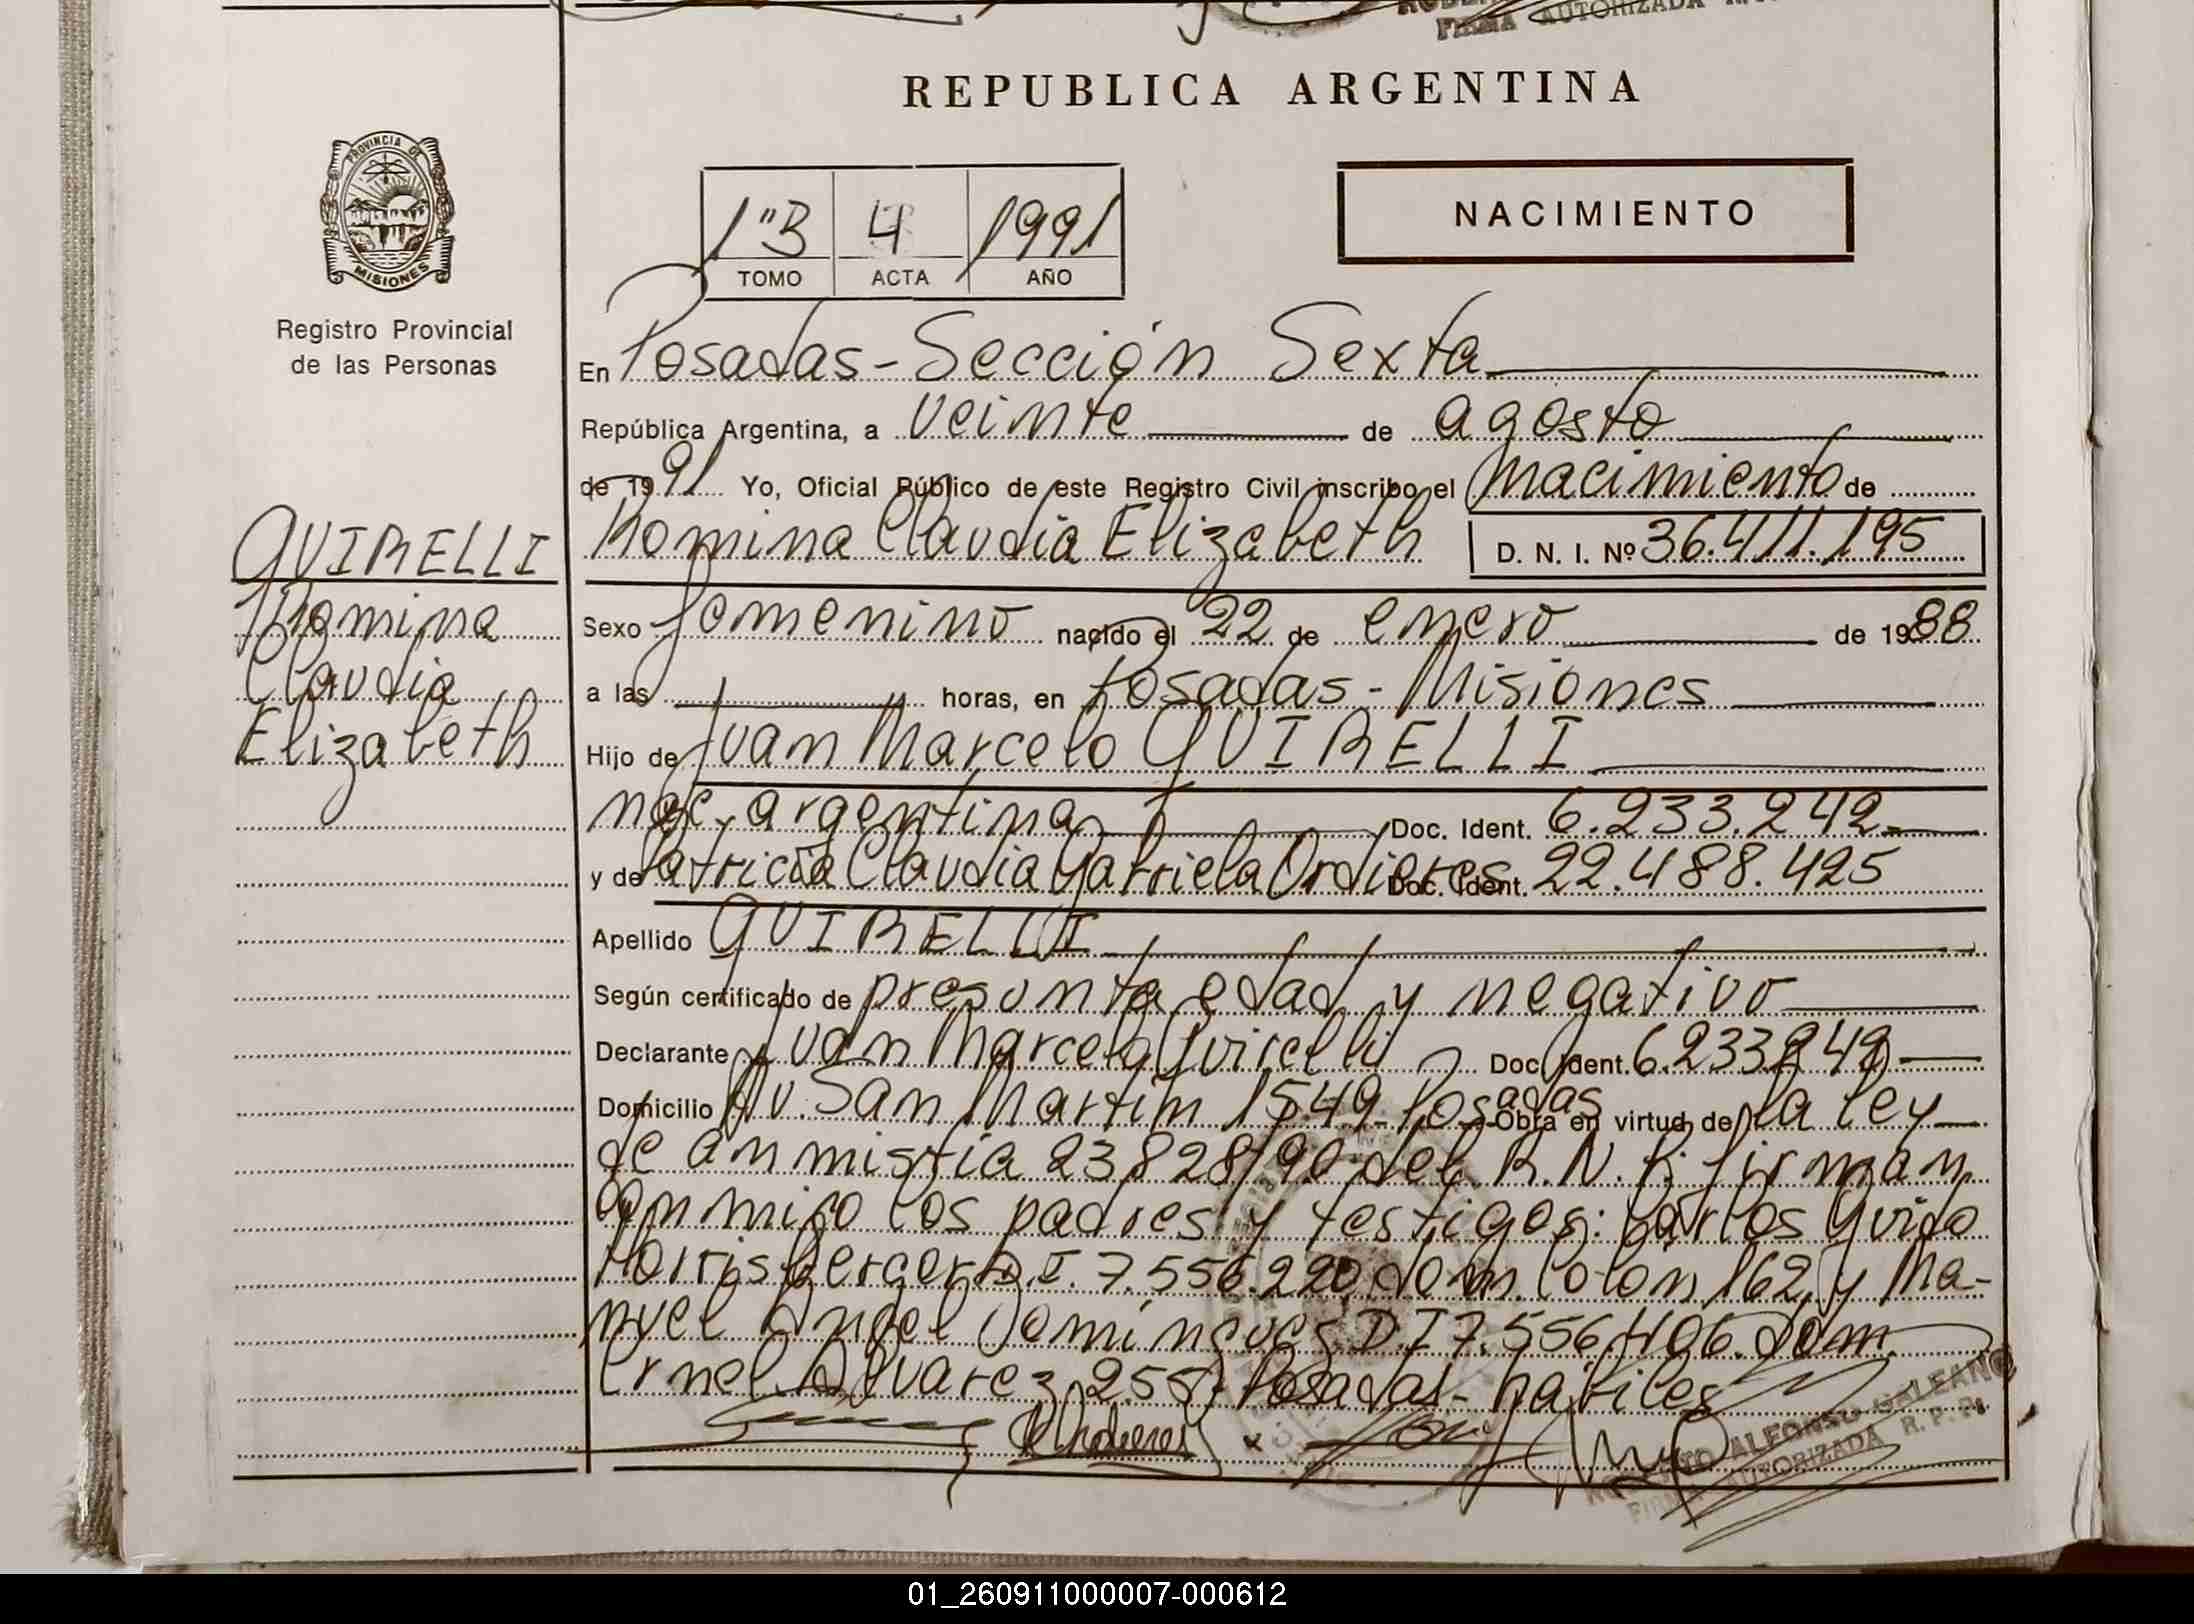 FIRMA AUTORIZADA
REPUBLICA ARGENTINA
PROVINCIA DE
MISIONES
Registro Provincial
de las Personas
1"B 4 1991
TOMO ACTA AÑO
NACIMIENTO
En Posadas - Sección Sexta
República Argentina, a veinte de agosto
de 1991 Yo, Oficial Público de este Registro Civil inscribo el nacimiento de
QUIRELLI
Romina
Claudia
Elizabeth
Romina Claudia Elizabeth D. N. I. Nº 36.411.195
Sexo femenino nacido el 22 de enero de 1988
a las horas, en Posadas - Misiones
Hijo de Juan Marcelo QUIRELLI
nac. argentina Doc. Ident. 6.233.242
y de Patricia Claudia Gabriela Ordieres Doc. Ident. 22.488.425
Apellido QUIRELLI
Según certificado de presunta edad y negativo
Declarante Juan Marcelo Quirelli Doc. Ident. 6.233.242
Domicilio Av. San Martín 1549 - Posadas Obra en virtud de la ley
de amnistía 23.828/90 del R.N.P. firman
conmigo los padres y testigos: Carlos Guido
Morrisberger D.I. 7.556.220, dom. Colon 162, y Ma-
nuel Angel Domíngues D.I 7.556.406. dom.
Crnel. Alvarez 255 - Posadas - habiles
ROBERTO ALFONSO GALEANO
FIRMA AUTORIZADA R. P. P.
01_260911000007-000612